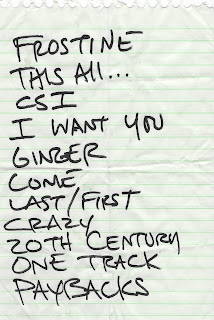 FROSTINE
THIS ALL...
CSI
I WANT YOU
GINGER
COME
LAST/FIRST
CRAZY
20TH CENTURY
ONE TRACK
PAYBACKS